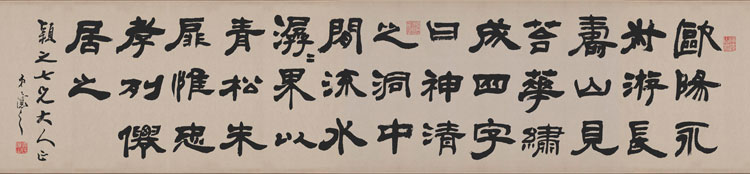 歐陽永
叔游長
壽山見
苔華繡
成四字
曰神清
之洞中
聞流水
潺〻果以
青松朱
扉惟忠
孝列僊
居之
穎之七兄大人正